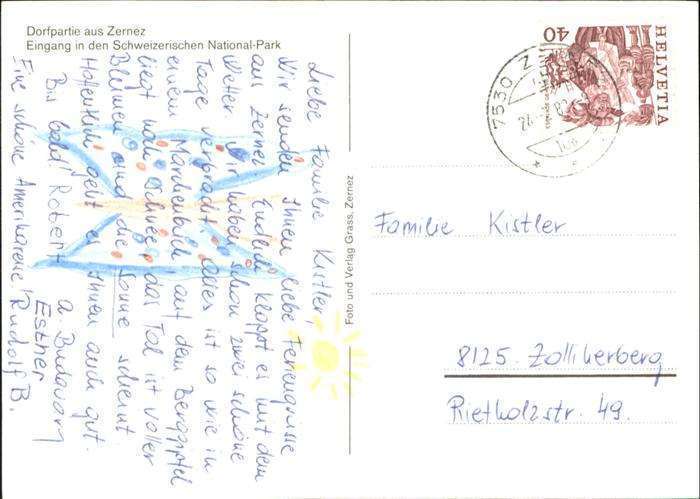 Dorfpartie aus Zernez
Eingang in den Schweizerischen National-Park
Liebe Familie Kistler,
Wir senden Ihnen liebe Feriengrüsse
aus Zernez. Endlich klappt es mit dem
Wetter. Wir haben schon zwei schöne
Tage verbracht. Alles ist so wie in
einem Märchenbuch, auf dem Berggipfel
liegt noch Schnee, das Tal ist voller
Blumen und die Sonne scheint
Hoffentlich geht es Ihnen auch gut.
Bis bald! Robert
a. Budavary
Esther
Eine schöne Amerikareise! Rudolf B.
Foto und Verlag Grass, Zernez
HELVETIA
40
7530 Z
Familie Kistler
8125 Zollikerberg
Rietholzstr. 49.